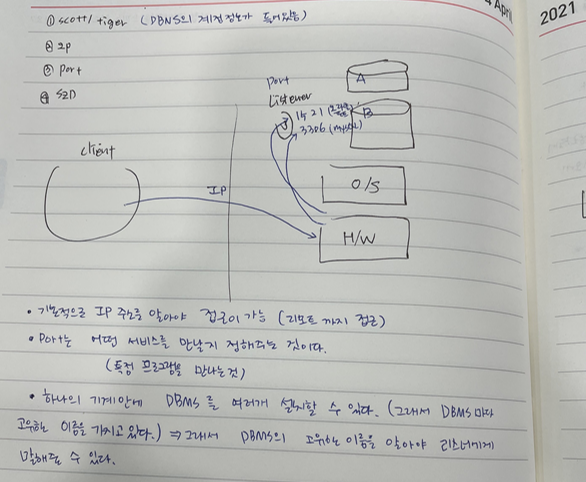 April
2021
① scott/tiger (DBMS의 계정정보가 들어있음)
② IP
③ Port
④ SID
Port
Listener
1521
3306 (mysql)
A
B
client
IP
O/S
H/W
• 기본적으로 IP 주소를 알아야 접근이 가능 (리모트 까지 접근)
• Port는 어떤 서비스를 만날지 정해주는 것이다.
(특정 프로그램을 만나는것)
• 하나의 기계안에 DBMS를 여러개 설치할 수 있다. (그래서 DBMS 마다
고유한 이름을 가지고 있다.) ⇒ 그래서 DBMS의 고유한 이름을 알아야 리스너에게
말해줄 수 있다.